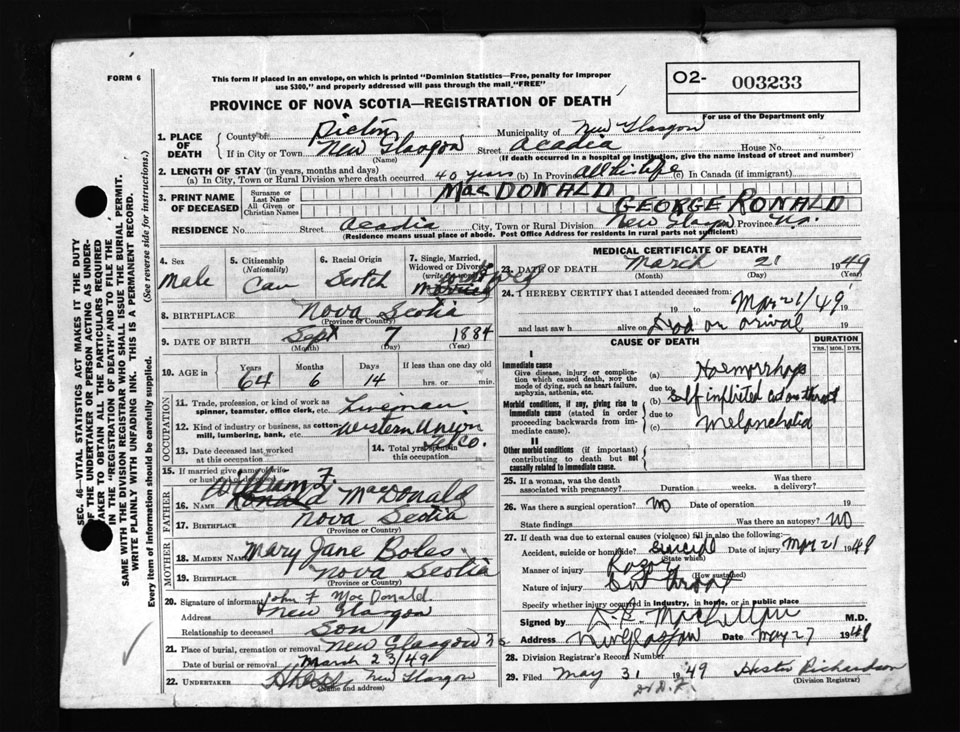 FORM 6
This form if placed in an envelope, on which is printed "Dominion Statistics—Free, penalty for improper
use $300," and properly addressed will pass through the mail "FREE"
O2- 003233
For use of the Department only
PROVINCE OF NOVA SCOTIA—REGISTRATION OF DEATH
1. PLACE OF DEATH { County of Pictou Municipality of New Glasgow
If in City or Town New Glasgow (Name) Street Acadia House No.
(If death occurred in a hospital or institution, give the name instead of street and number)
2. LENGTH OF STAY (in years, months and days)
(a) In City, Town or Rural Division where death occurred 40 years (b) In Province All his life (c) In Canada (if immigrant)
3. PRINT NAME OF DECEASED { Surname or Last Name MacDONALD
All Given or Christian Names GEORGE RONALD
RESIDENCE No. Street Acadia City, Town or Rural Division New Glasgow Province N.S.
(Residence means usual place of abode. Post Office Address for residents in rural parts not sufficient)
4. Sex Male
5. Citizenship (Nationality) Can
6. Racial Origin Scotch
7. Single, Married, Widowed or Divorced (write
8. BIRTHPLACE Nova Scotia
(Province or Country)
9. DATE OF BIRTH Sept 7 1884
(Month) (Day) (Year)
10. AGE in { Years 64 Months 6 Days 14 If less than one day old
hrs. or min.
OCCUPATION
11. Trade, profession, or kind of work as
spinner, teamster, office clerk, etc. Lineman
12. Kind of industry or business, as cotton
mill, lumbering, bank, etc. Western Union Tel Co.
13. Date deceased last worked
at this occupation
14. Total yrs. spent in
this occupation
15. If married give name of wife
or husband of deceased
FATHER
William F.
16. Name Ronald MacDonald
17. Birthplace Nova Scotia
(Province or Country)
MOTHER
18. Maiden Name Mary Jane Boles
19. Birthplace Nova Scotia
(Province or Country)
20. Signature of informant John F MacDonald
Address New Glasgow
Relationship to deceased Son
21. Place of burial, cremation or removal New Glasgow N S
Date of burial or removal March 23/49
22. UNDERTAKER New Glasgow
(Name and address)
MEDICAL CERTIFICATE OF DEATH
23. DATE OF DEATH March 21 1949
(Month) (Day)
24. I HEREBY CERTIFY that I attended deceased from: Mar 21/49
19 to 19
and last saw h alive on Dead on arival 19
CAUSE OF DEATH
DURATION
YRS. MOS. DYS.
I
Immediate cause
Give disease, injury or complication
which caused death, NOT the
mode of dying, such as heart failure,
asphyxia, asthenia, etc.
(a) Haemorrhage
due to
Morbid conditions, if any, giving rise to
immediate cause (stated in order
proceeding backwards from immediate
cause).
(b) Self inflicted cut on throat
due to
(c) Melancholia
II
Other morbid conditions (if important)
contributing to death but not
causally related to immediate cause.
25. If a woman, was the death
associated with pregnancy? Duration weeks. Was there
a delivery?
26. Was there a surgical operation? NO Date of operation 19
State findings Was there an autopsy? NO
27. If death was due to external causes (violence) fill in also the following:
Accident, suicide or homicide? Suicide Date of injury Mar 21 1949
(State which)
Manner of injury Razor
(How sustained)
Nature of injury Cut throat
Specify whether injury occurred in industry, in home, or in public place
Signed by M.D.
Address New Glasgow Date May 27 1949
28. Division Registrar's Record Number
29. Filed May 31 1949 Hester Richardson
(Division Registrar)
SEC. 46—VITAL STATISTICS ACT MAKES IT THE DUTY
OF THE UNDERTAKER OR PERSON ACTING AS UNDERTAKER
TO OBTAIN ALL THE PARTICULARS REQUIRED
IN THE "REGISTRATION OF DEATH" AND TO FILE THE
SAME WITH THE DIVISION REGISTRAR WHO SHALL ISSUE THE BURIAL PERMIT.
WRITE PLAINLY WITH UNFADING INK. THIS IS A PERMANENT RECORD.
Every item of information should be carefully supplied. (See reverse side for instructions.)